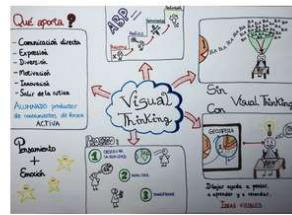 Qué aporta?
- Comunicación directa
- Expresión
- Diversión
- Motivación
- Innovación
- Salir de la rutina
ALUMNADO productor
de conocimientos de forma
ACTIVA
Pensamiento
+
Emoción
ABP
Visual
Thinking
PROCESO:
1
2
3
Bla
Sin
Visual Thinking
Con
GEOGRAFÍA
Dibujar ayuda a pensar,
a aprender y a recordar.
IDEAS VISUALES